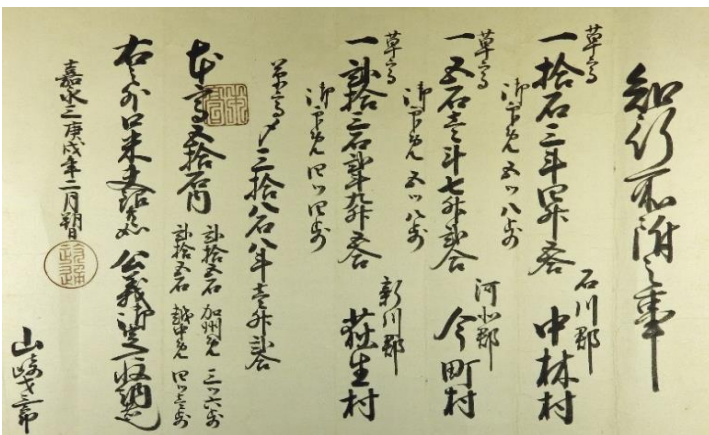 知行所附之事
草高
一拾石三斗四升五合 石川郡 中林村
御印免 五ツ八歩
草高
一五石壱斗七升弐合 河北郡 今町村
御印免 五ツ八歩
草高
一弐拾三石弐斗九升五合 新川郡 荻生村
御印免 四ツ四歩
草高〆三拾八石八斗壱升弐合
本高五拾石内
弐拾五石 加州免 三ツ六歩
弐拾五石 越中免 四ツ壱歩
右之外口米夫銀如 公義御定可収納也
嘉永三庚戌年二月朔日
山崎